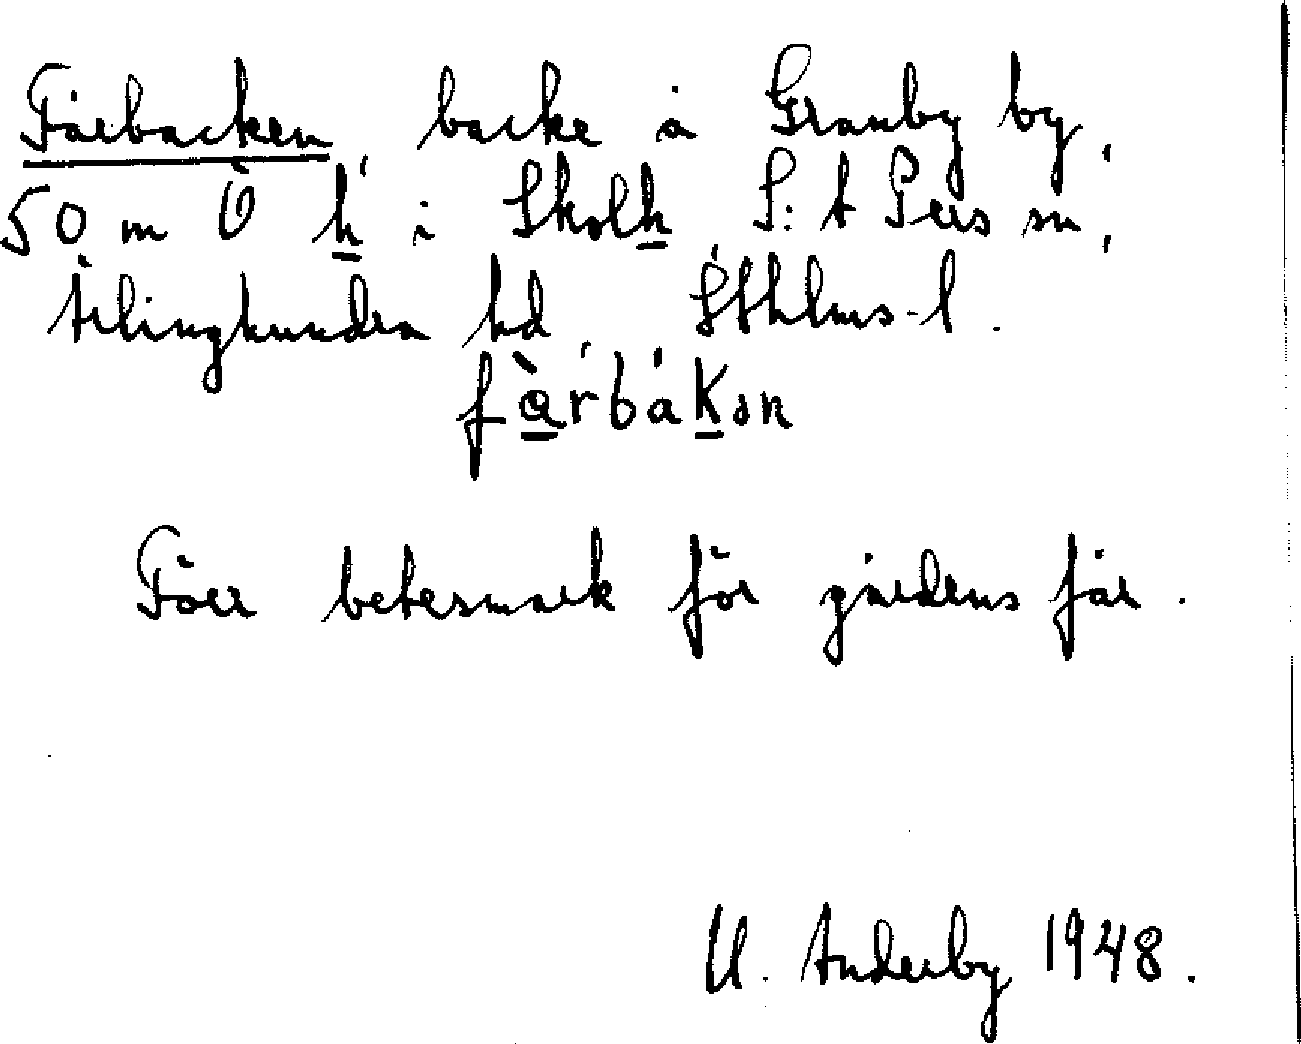 Fårbacken, backe å Granby by,
50 m Ö k i Skolk S:t Pers sn,
Ärlinghundra hd, Sthlms-l.
fàrbákən
Förr betesmark för gårdens får.
U. Anderby 1948.